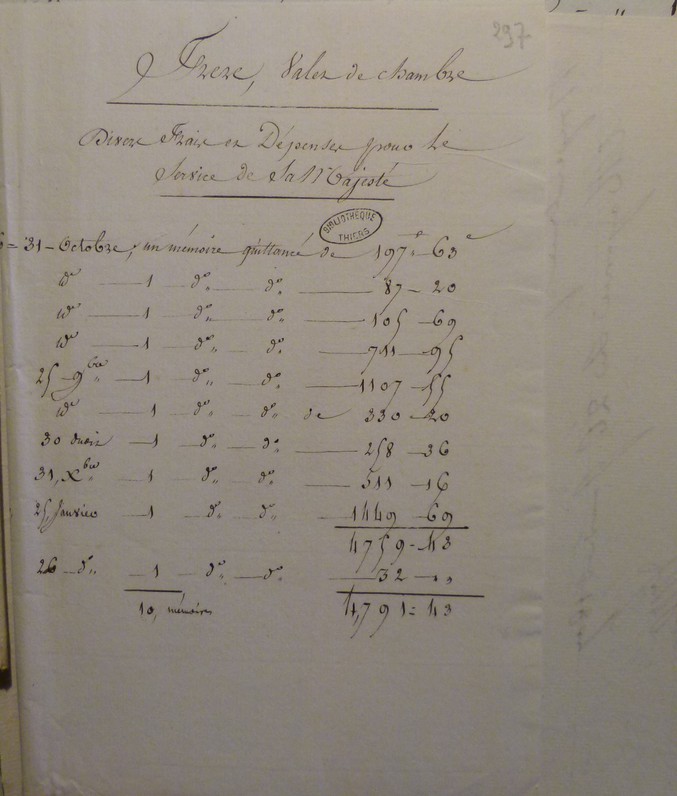 297
Frere, Valet de chambre
Divers Frais et Dépenses pour le
Service de Sa Majesté
BIBLIOTHÈQUE THIERS
= 31 - Octobre, un mémoire quittancé de 197 f - 63 c
id — 1 — do — do — 87 - 20
id — 1 — do — do — 105 - 69
id — 1 — do — do — 711 - 95
25 - 9bre — 1 — do — do — 1107 - 55
id — 1 — do — do de 330 - 20
30 dudit — 1 — do — do — 258 - 36
31, Xbre — 1 — do — do — 511 - 16
25, Janvier — 1 — do — do — 1449 - 69
4759 - 43
26 - do — 1 — do — do — 32 - ..
10, mémoires 4,791 = 43